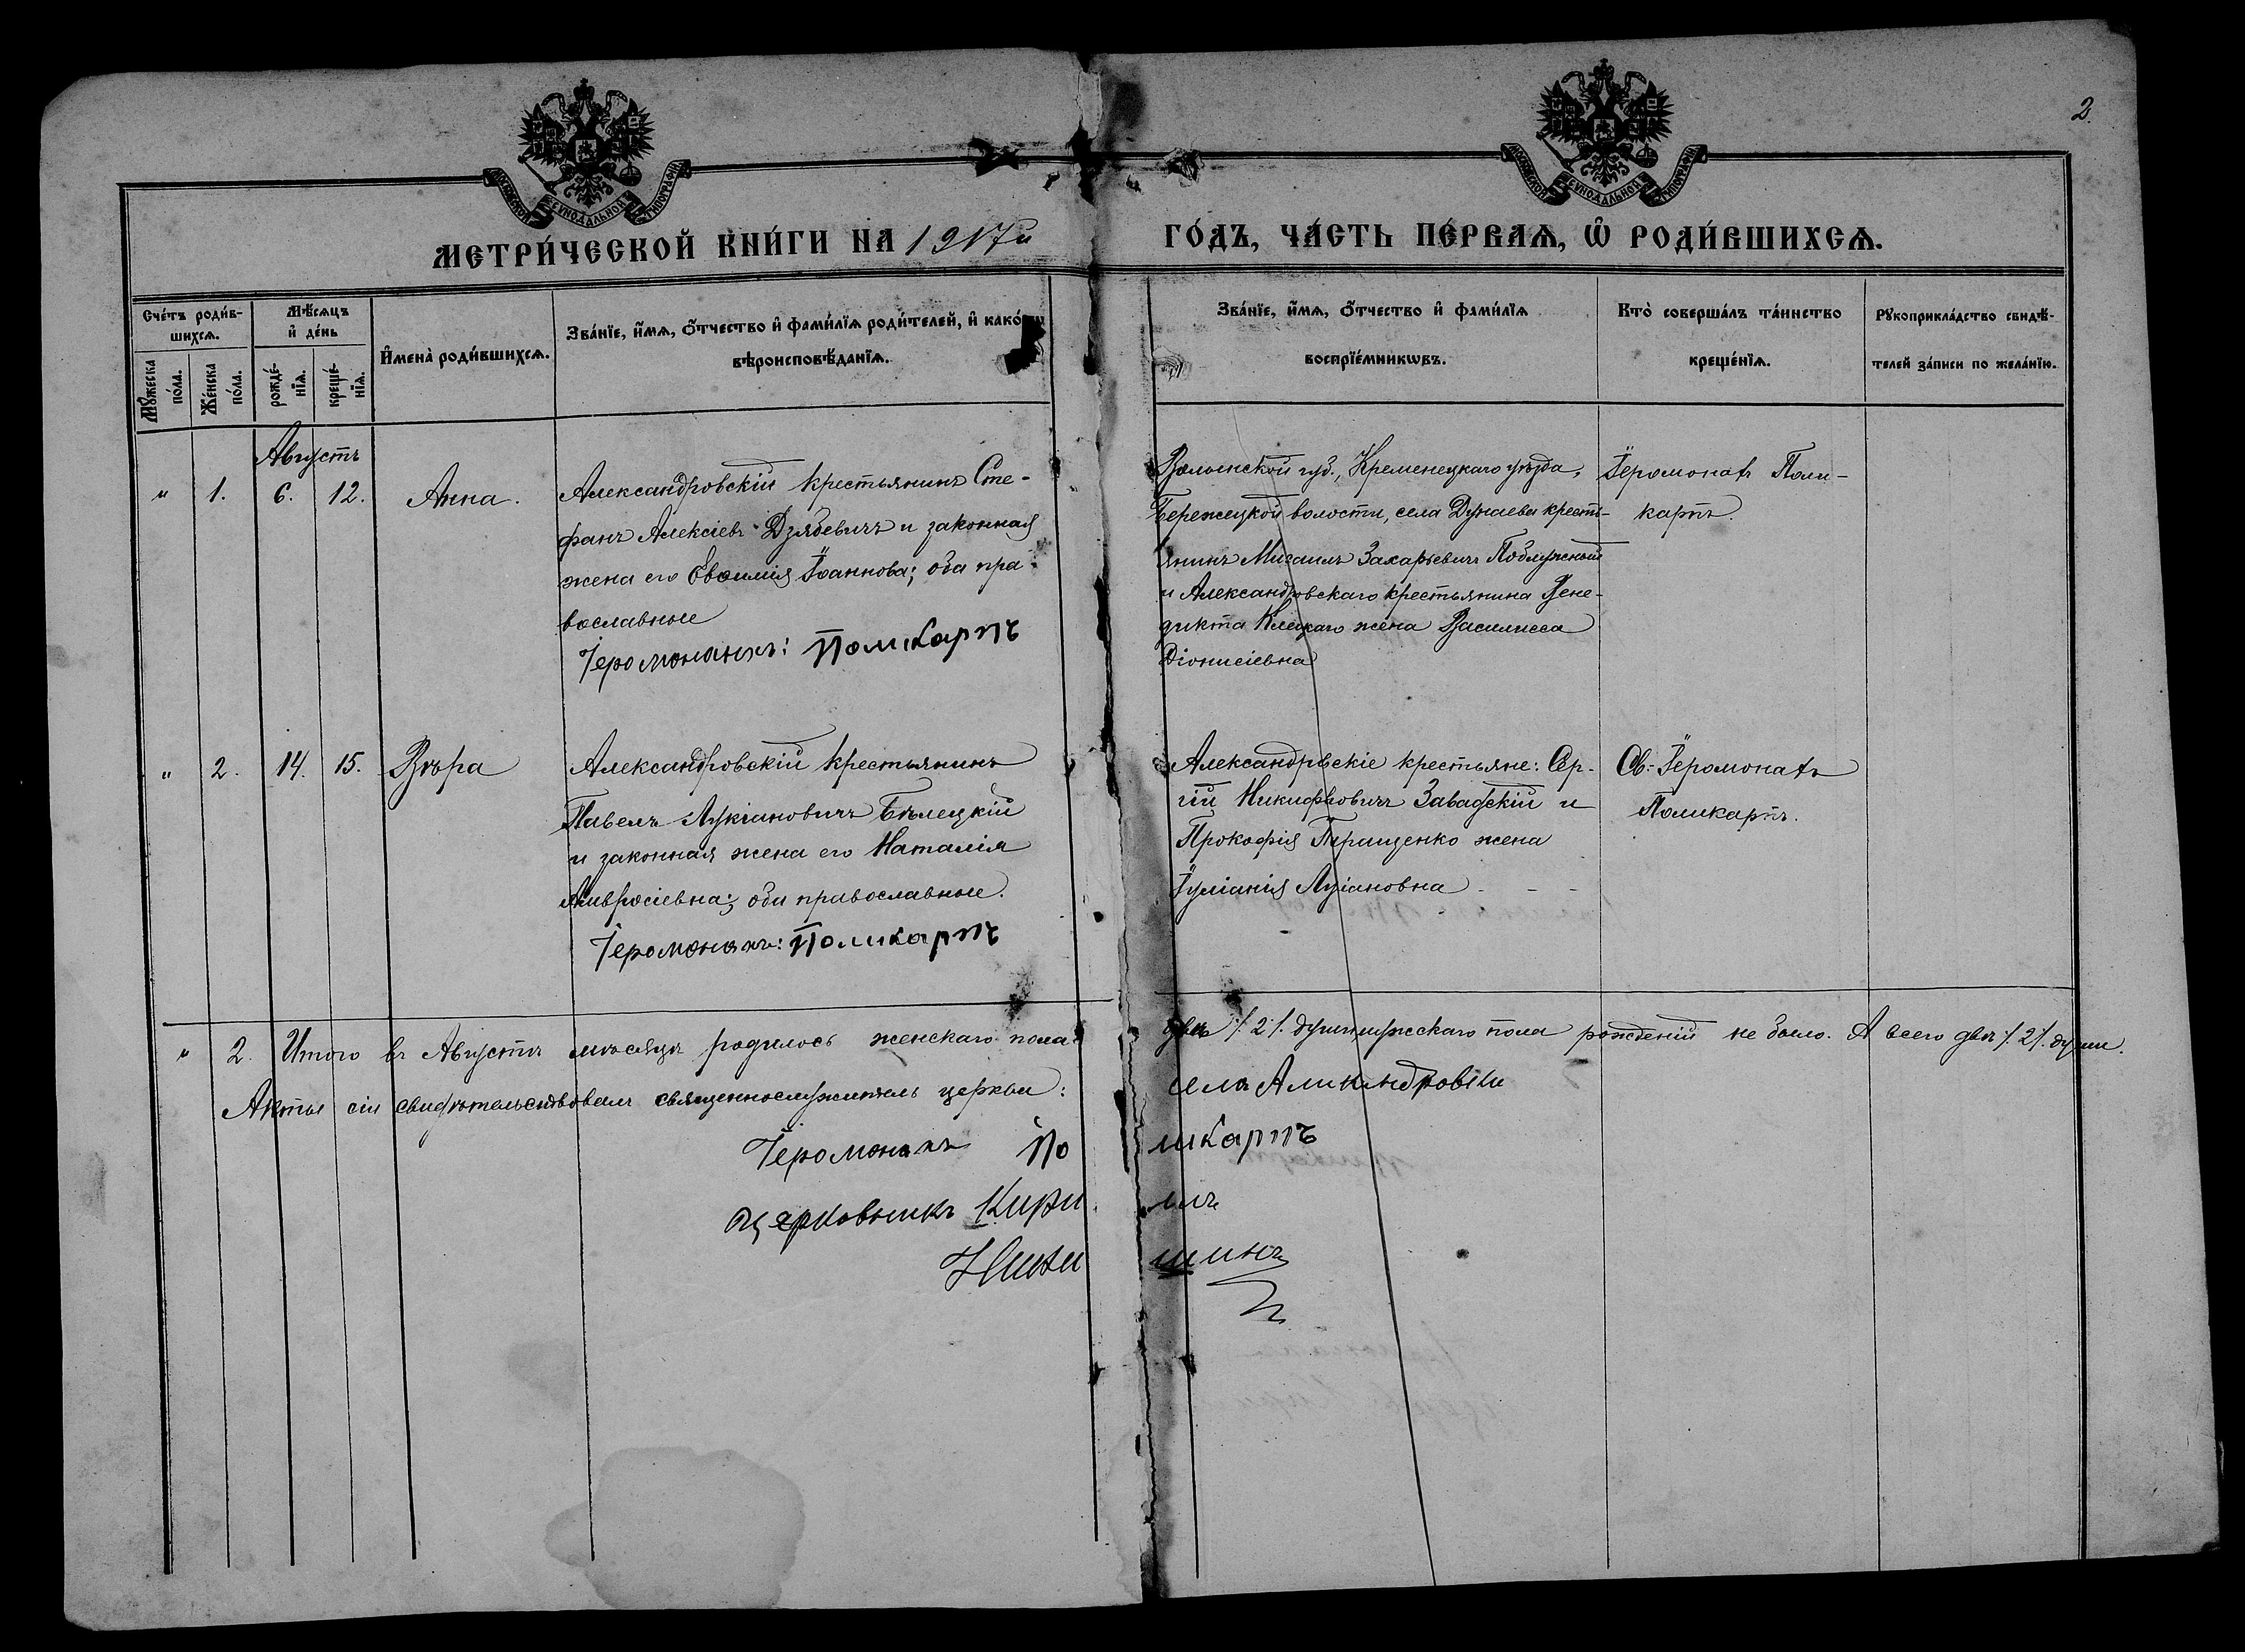 2.
МОСКОВСКОЙ СѴНОДАЛЬНОЙ ТИПОГРАФІИ
МОСКОВСКОЙ СѴНОДАЛЬНОЙ ТИПОГРАФІИ
МЕТРИ́ЧЕСКОЙ КНИ́ГИ НА 1917й ГО́ДЪ, ЧА́СТЬ ПЕ́РВАѦ, Ѡ҆ РОДИ́ВШИХСѦ.
Сче́тъ роди́в-
шихсѧ.
Мꙋ́жеска по́ла.
Же́нска по́ла.
Мѣ́сѧцъ
и҆ де́нь
рожде́-
нїѧ.
креще́-
нїѧ.
И҆мена̀ роди́вшихсѧ.
Зва́нїе, и҆́мѧ, ѻ҆́тчество и҆ фамѝлїѧ роди́телей, и҆ како́гѡ
вѣроисповѣ́данїѧ.
Зва́нїе, и҆́мѧ, ѻ҆́тчество и҆ фами́лїѧ
воспрїе́мникѡвъ.
Кто̀ соверша́лъ та́инство
креще́нїѧ.
Рꙋкоприкла́дство свидѣ́-
телей за́писи по жела́нїю.
Августъ
" 1. 6. 12. Анна.
Александровскій крестьянинъ Сте-
фанъ Алексіевъ Дзябевичъ и законная
жена его Евѳимія Іоаннова; оба пра-
вославные
Іеромонахъ: Поликарпъ
Волынской губ., Кременецкаго уѣзда,
Бережецкой волости, села Дунаева кресть-
янинъ Михаилъ Захарьевичъ Поблужный
и Александровскаго крестьянина Вене-
дикта Клецкаго жена Василисса
Діонисіевна
Іеромонахъ Поли-
карпъ.
" 2. 14. 15. Вѣра
Александровскій крестьянинъ
Павелъ Лукіановичъ Бѣлецкій
и законная жена его Наталія
Амвросіевна; оба православные.
Іеромонахъ: Поликарпъ
Александрвскіе крестьяне: Сер-
гій Никифровичъ Завадскій и
Прокофія Терищенко жена
Іуліанія Луіановна - - -
Св: Іеромонахъ
Поликарпъ.
" 2. Итого въ Августѣ мѣсяцѣ родилось женскаго пола двѣ /.2/. души, мужскаго пола рожденій не было. А всего двѣ /.2/. души.
Акты сіи свидѣтельствовалъ священнослужитель церкви: села Александровки
Іеромонахъ Поликарпъ
Церковникъ Кирилъ